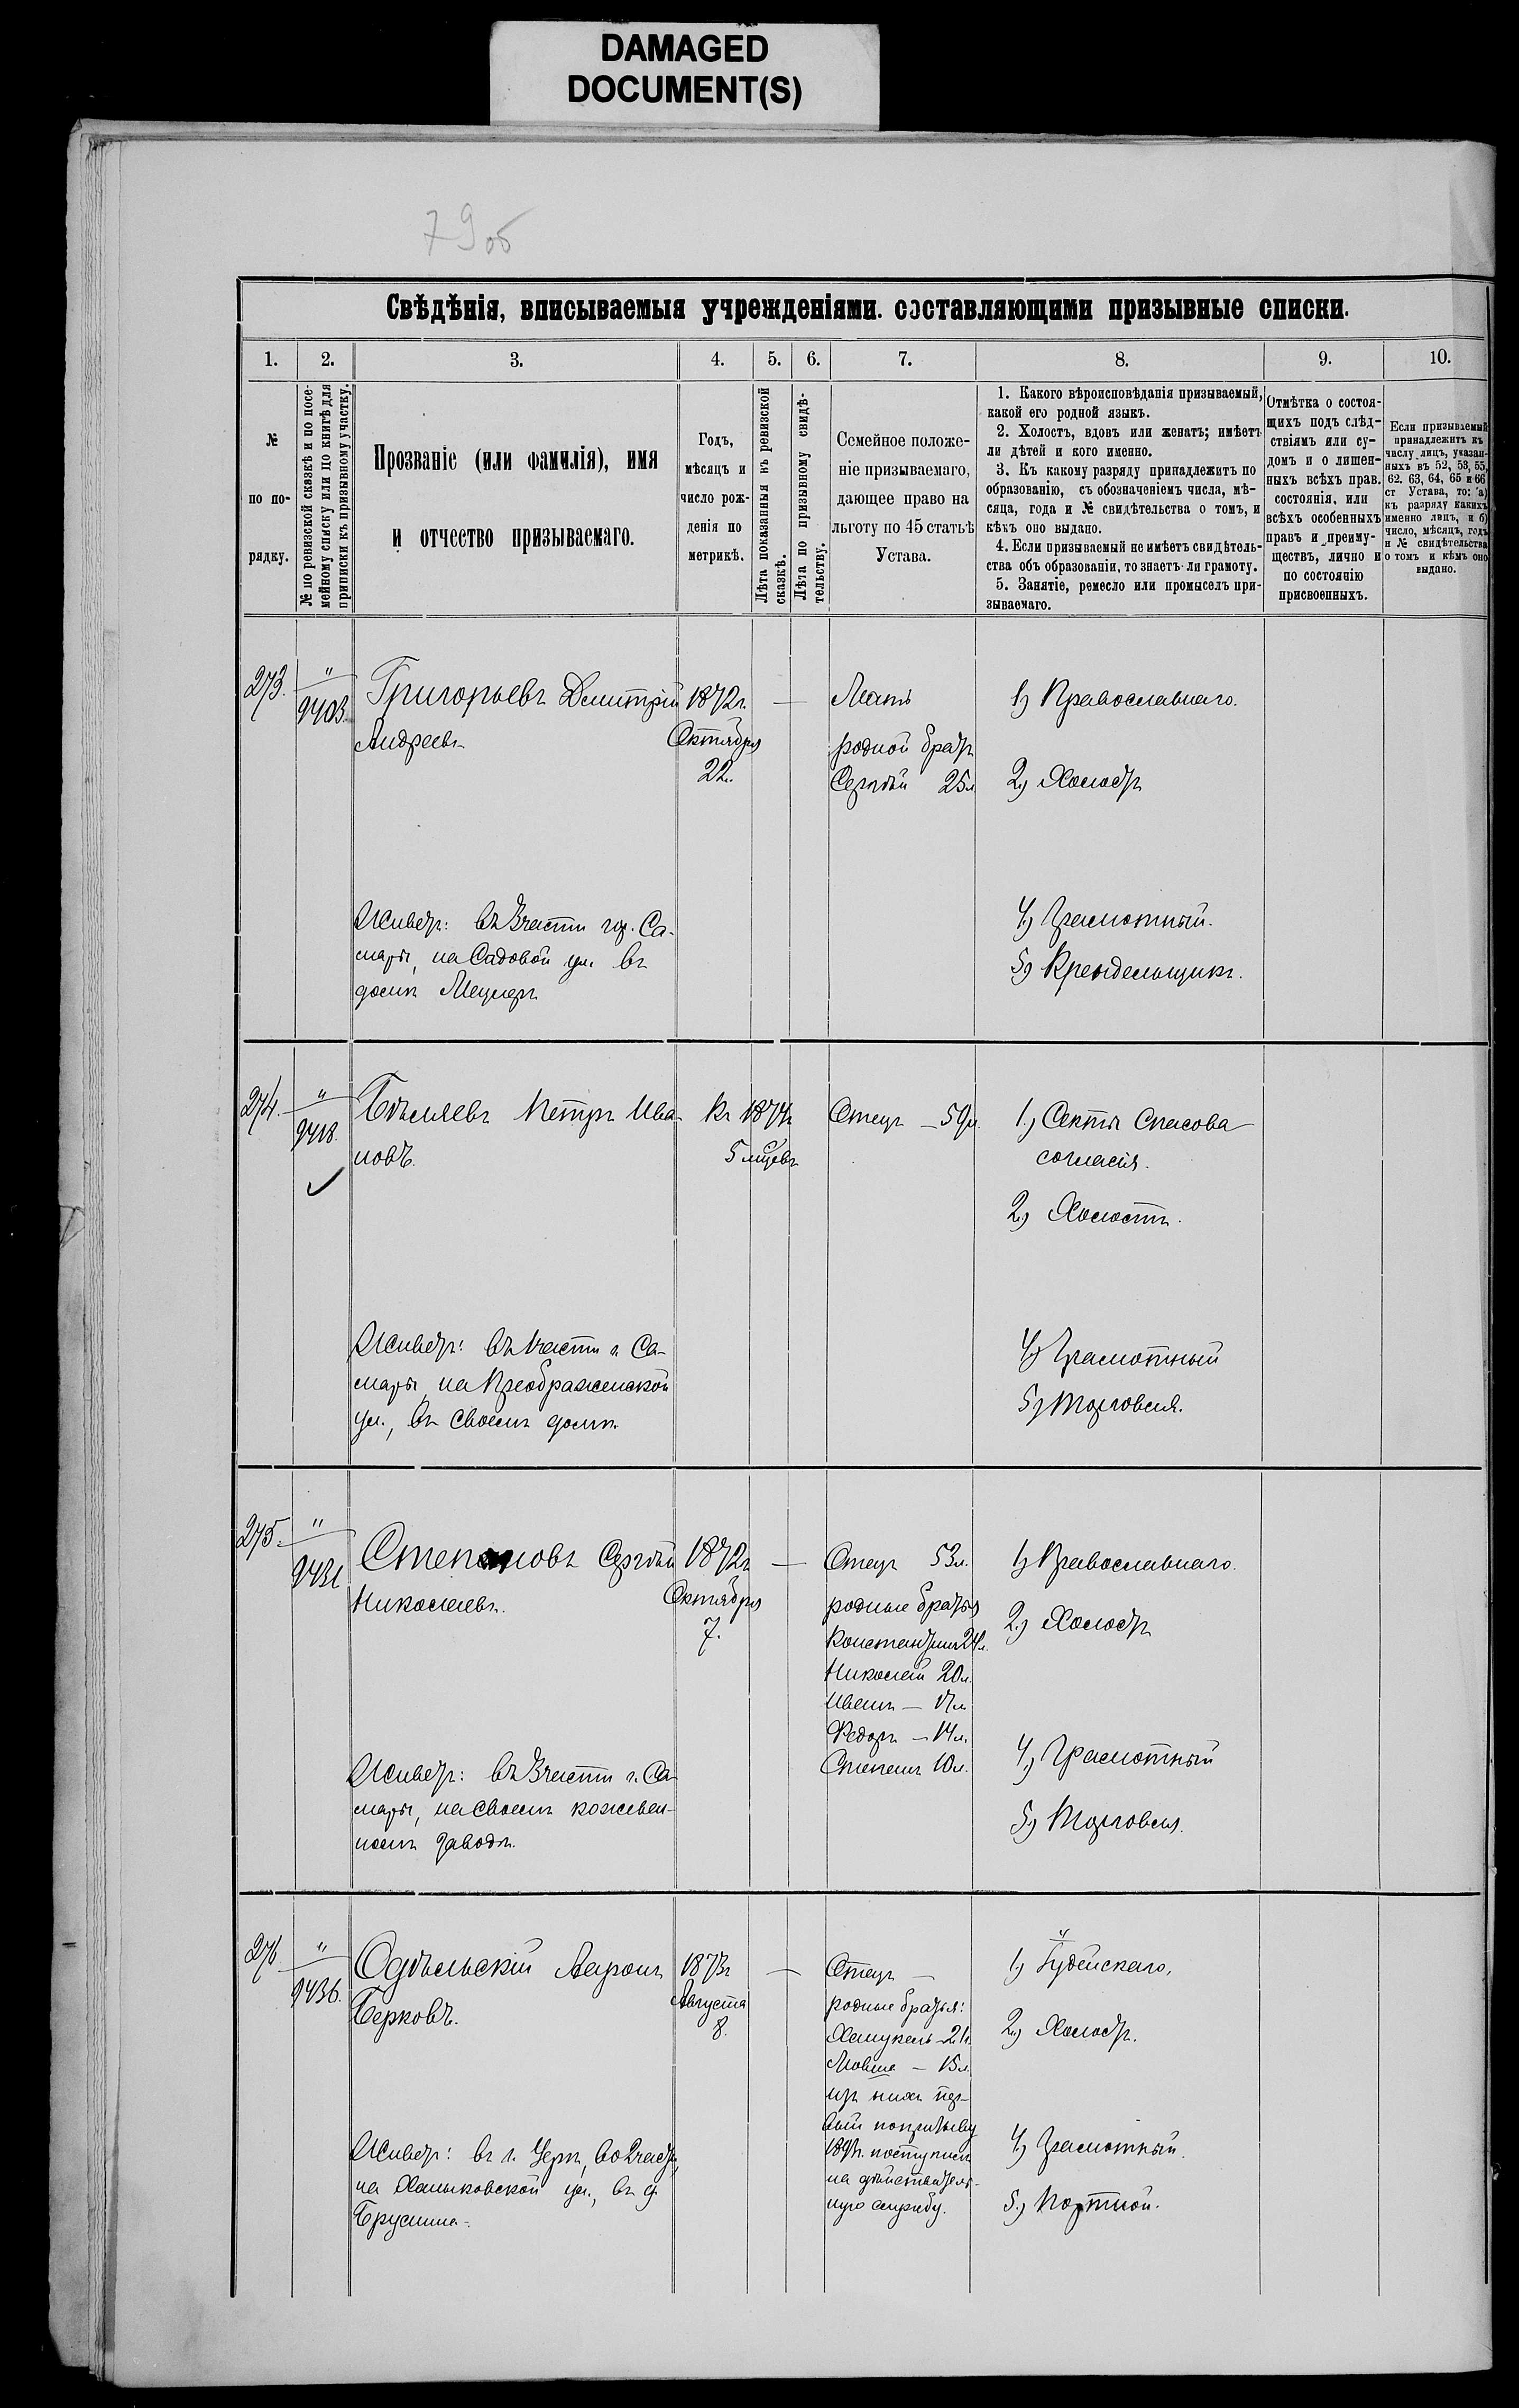 DAMAGED
DOCUMENT(S)
79об
Свѣдѣнія, вписываемыя учрежденіями. составляющими призывные списки.
1. 2. 3. 4. 5. 6. 7. 8. 9. 10.
№
по по-
рядку.
№ по ревизской сказкѣ и по посе-
мейному списку или по книгѣ для
приписки къ призывному участку.
Прозваніе (или фамилія), имя
и отчество призываемаго.
Годъ,
мѣсяцъ и
число рож-
денія по
метрикѣ.
Лѣта показанныя въ ревизской
сказкѣ.
Лѣта по призывному свидѣ-
тельству.
Семейное положе-
ніе призываемаго,
дающее право на
льготу по 45 статьѣ
Устава.
1. Какого вѣроисповѣданія призываемый,
какой его родной языкъ.
2. Холостъ, вдовъ или женатъ; имѣетъ
ли дѣтей и кого именно.
3. Къ какому разряду принадлежитъ по
образованію, съ обозначеніемъ числа, мѣ-
сяца, года и № свидѣтельства о томъ, и
кѣмъ оно выдано.
4. Если призываемый не имѣетъ свидѣтель-
ства объ образованіи, то знаетъ-ли грамоту.
5. Занятіе, ремесло или промыселъ при-
зываемаго.
Отмѣтка о состоя-
щихъ подъ слѣд-
ствіямъ или су-
домъ и о лишен-
ныхъ всѣхъ прав.
состоянія, или
всѣхъ особенныхъ
правъ и преиму-
ществъ, лично и
по состоянію
присвоенныхъ.
Если призываемый
принадлежитъ къ
числу лицъ, указан-
ныхъ въ 52, 53, 55,
62. 63, 64, 65 и 66
ст Устава, то: а)
къ разряду какихъ
именно лицъ, и б)
число, мѣсяцъ, годъ
и № свидѣтельства
о томъ и кѣмъ оно
выдано.
273.
"
9403.
Григорьевъ Дмитрій
Андреевъ
1872г.
Октября
22.
—
Мать
родной братъ
Сергѣй 25л
1) Православнаго.
2) Холостъ
4) Грамотный.
5) Крендельщикъ.
Живетъ: въ 3 части гор. Са-
мары, на Садовой ул. въ
домѣ
274.
"
9418.
Бѣляевъ Петръ Ива-
новъ.
Къ 1874г
5 мцевъ
Отецъ — 59л.
1.) Секты Спасова
согласія.
2.) Холостъ.
4.) Грамотный
5) Торговля.
Живетъ: въ 1 части г. Са-
мары, на Преображенской
ул., въ своемъ домѣ.
275.
"
9431
Степановъ Сергѣй
Николаевъ.
1872г
Октября
7.
—
Отецъ 53л.
родные братья
Константинъ 24л.
Николай 20л.
Иванъ — 17л
Федоръ — 14л.
Степанъ 10л.
1) Православнаго.
2.) Холостъ
4.) Грамотный
5.) Торговля.
Живетъ: въ 3 части г. Са
мары, на своемъ кожевен-
номъ заводѣ.
276.
"
9436.
Одѣльскій Ааронъ
Берковъ.
1873г
Августа
8.
—
Отецъ —
родные братья:
21.
Мовша — 15л.
изъ нихъ пер-
вый по призыву
поступилъ
на дѣйствитель-
ную службу.
1) Іудейскаго,
2.) Холостъ.
4.) Грамотный.
5.) Портной.
Живетъ: въ г. во 2 части,
на Ханыковской ул., въ д.